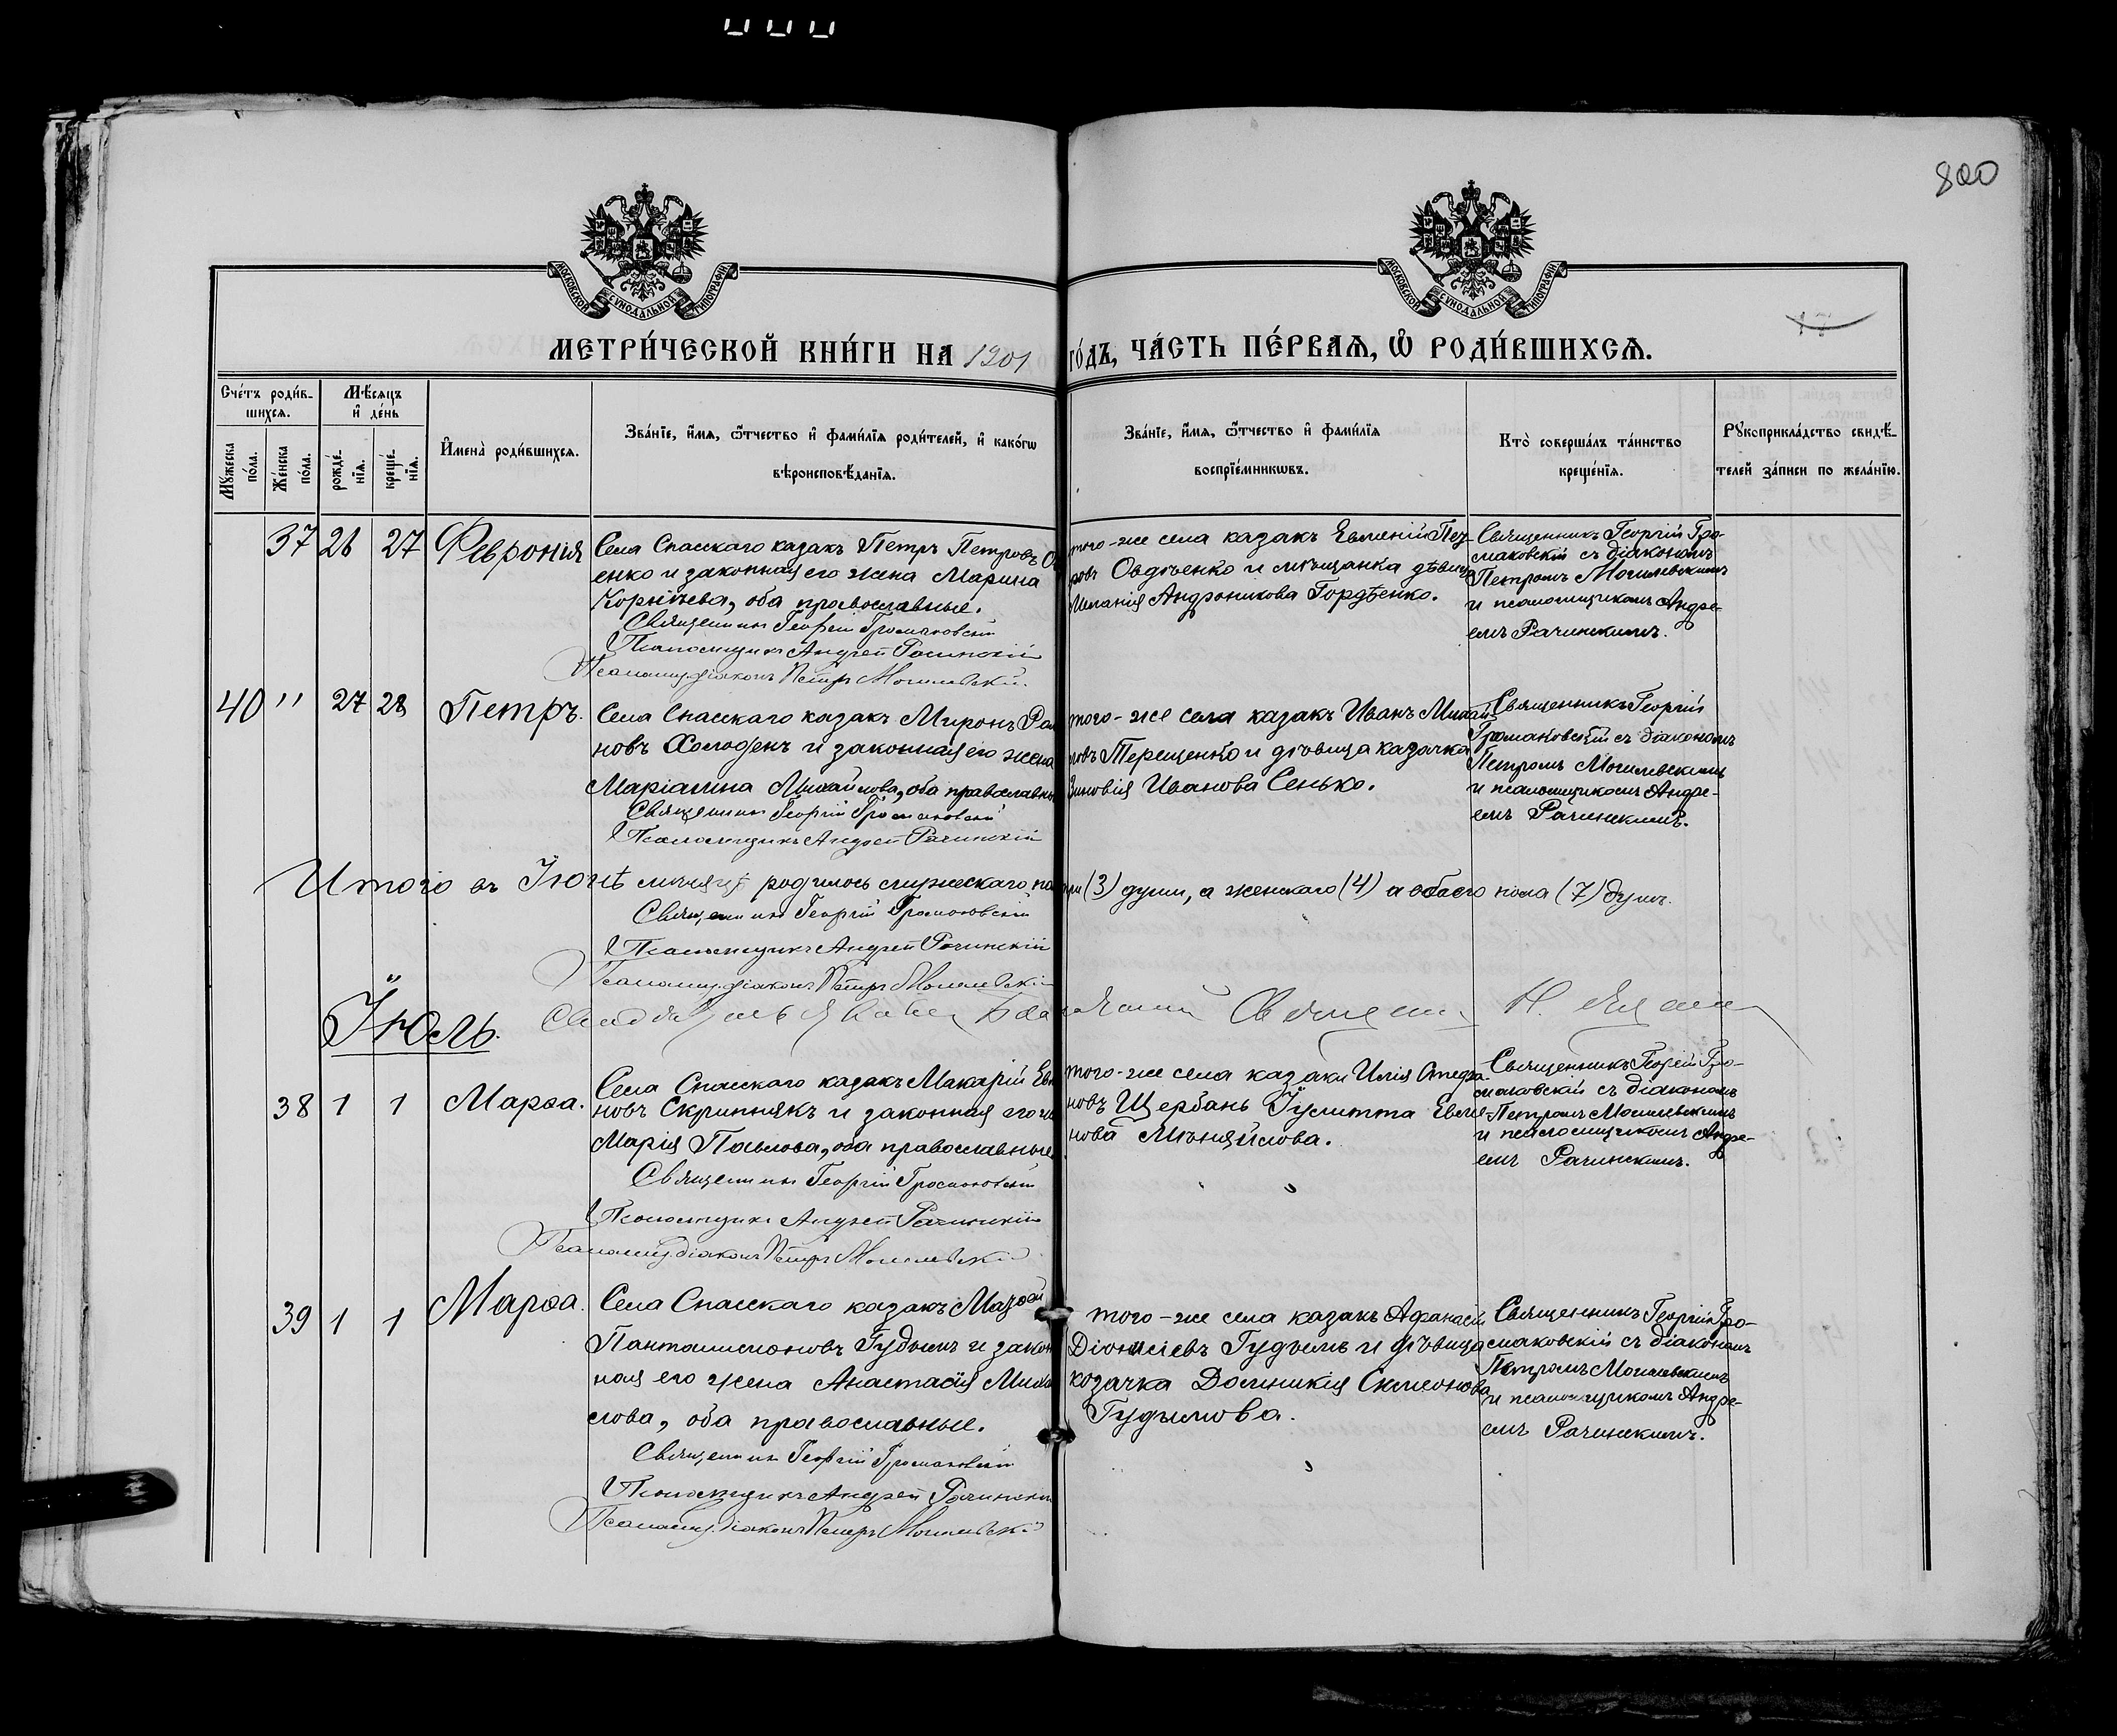 800
МОСКОВСКОЙ СѴНОДАЛЬНОЙ ТИПОГРАФІИ
МОСКОВСКОЙ СѴНОДАЛЬНОЙ ТИПОГРАФІИ
МЕТРИ́ЧЕСКОЙ КНИ́ГИ НА 1901 ГО́ДЪ, ЧА́СТЬ ПЕ́РВАѦ, Ѡ РОДИ́ВШИХСѦ.
Сче́тъ роди́в-
шихсѧ.
Мѣ́сѧцъ
и де́нь
Мꙋ́жеска
по́ла.
Же́нска
по́ла.
рожде́-
нїѧ.
креще́-
нїѧ.
И҆мена̀ роди́вшихсѧ.
Зва́нїе, и҆́мѧ, ѻ҆́тчество и҆ фами́лїѧ роди́телей, и҆ како́гѡ
вѣроисповѣ́данїѧ.
Зва́нїе, и҆́мѧ, ѻ҆́тчество и҆ фами́лїѧ
воспрїе́мникѡвъ.
Кто̀ соверша́лъ та́инство
креще́нїѧ.
Рꙋкоприкла́дство свидѣ́-
телей за́писи по жела́нїю.
37 26 27 Февронія
Села Спасскаго казакъ Петръ Петровъ Ов
енко и законная его жена Марина
Корнїева, оба православные.
Священникъ Георгій Громаковскій
Псаломщикъ Андрей Рачинскій
Псаломщ. діаконъ Петръ Могилевскій
того-же села казакъ Евменій Пет
ровъ Овдѣенко и мѣщанка дѣвица
Меланія Андроникова Гордѣенко.
Священникъ Георгій Гро-
маковскій съ діакономъ
Петромъ Могилевскимъ
и псаломщикомъ Андре-
емъ Рачинскимъ.
40 " 27 28 Петръ.
Села Спасскаго казакъ Миронъ Ром
новъ Холоденъ и законная его жена
Маріанна Михайлова, оба православны
Священникъ Георгій Громаковскій
Псаломщикъ Андрей Рачинскій
того-же села казакъ Иванъ Михай-
ловъ Терещенко и дѣвица казачка
Зиновія Иванова Сенько.
Священникъ Георгій
Громаковскій съ діакономъ
Петромъ Могилевскимъ
и псаломщикомъ Андре-
емъ Рачинскимъ.
Итого въ Іюнѣ мѣсяцѣ родилось мужескаго по три (3) души, а женскаго (4) а обоего пола (7) душъ.
Священникъ Георгій Громаковскій
Псаломщикъ Андрей Рачинскій
Псаломщ. діаконъ Петръ Могилевскій
Іюль.
38 1 1 Марѳа.
Села Спасскаго казакъ Макарій Евт
новъ Скрипнякъ и законная его ж
Марія Павлова, оба православные.
Священникъ Георгій Громаковскій
Псаломщикъ Андрей Рачинскій
Псаломщ. діаконъ Петръ Могилевскій
того-же села казаки Илія Стефа-
новъ Щербань Іулитта Евме-
нова Мѣняйлова.
Священникъ Георгій Гро-
маковскій съ діакономъ
Петромъ Могилевскимъ
и псаломщикомъ Андре-
емъ Рачинскимъ.
39 1 1 Марѳа.
Села Спасскаго казакъ
Пантелимоновъ Гудымъ и закон
ная его жена Анастасія Миха
лова, оба православные.
Священникъ Георгій Громаковскій
Псаломщикъ Андрей Рачинскій
Псаломщ. діаконъ Петръ Могилевскій
того-же села казакъ Афанасій
Діонисіевъ Гудымъ и дѣвица
козачка Домникія Симеонова
Гудымова.
Священникъ Георгій Гро-
маковскій съ діакономъ
Петромъ Могилевскимъ
и псаломщикомъ Андре-
емъ Рачинскимъ.